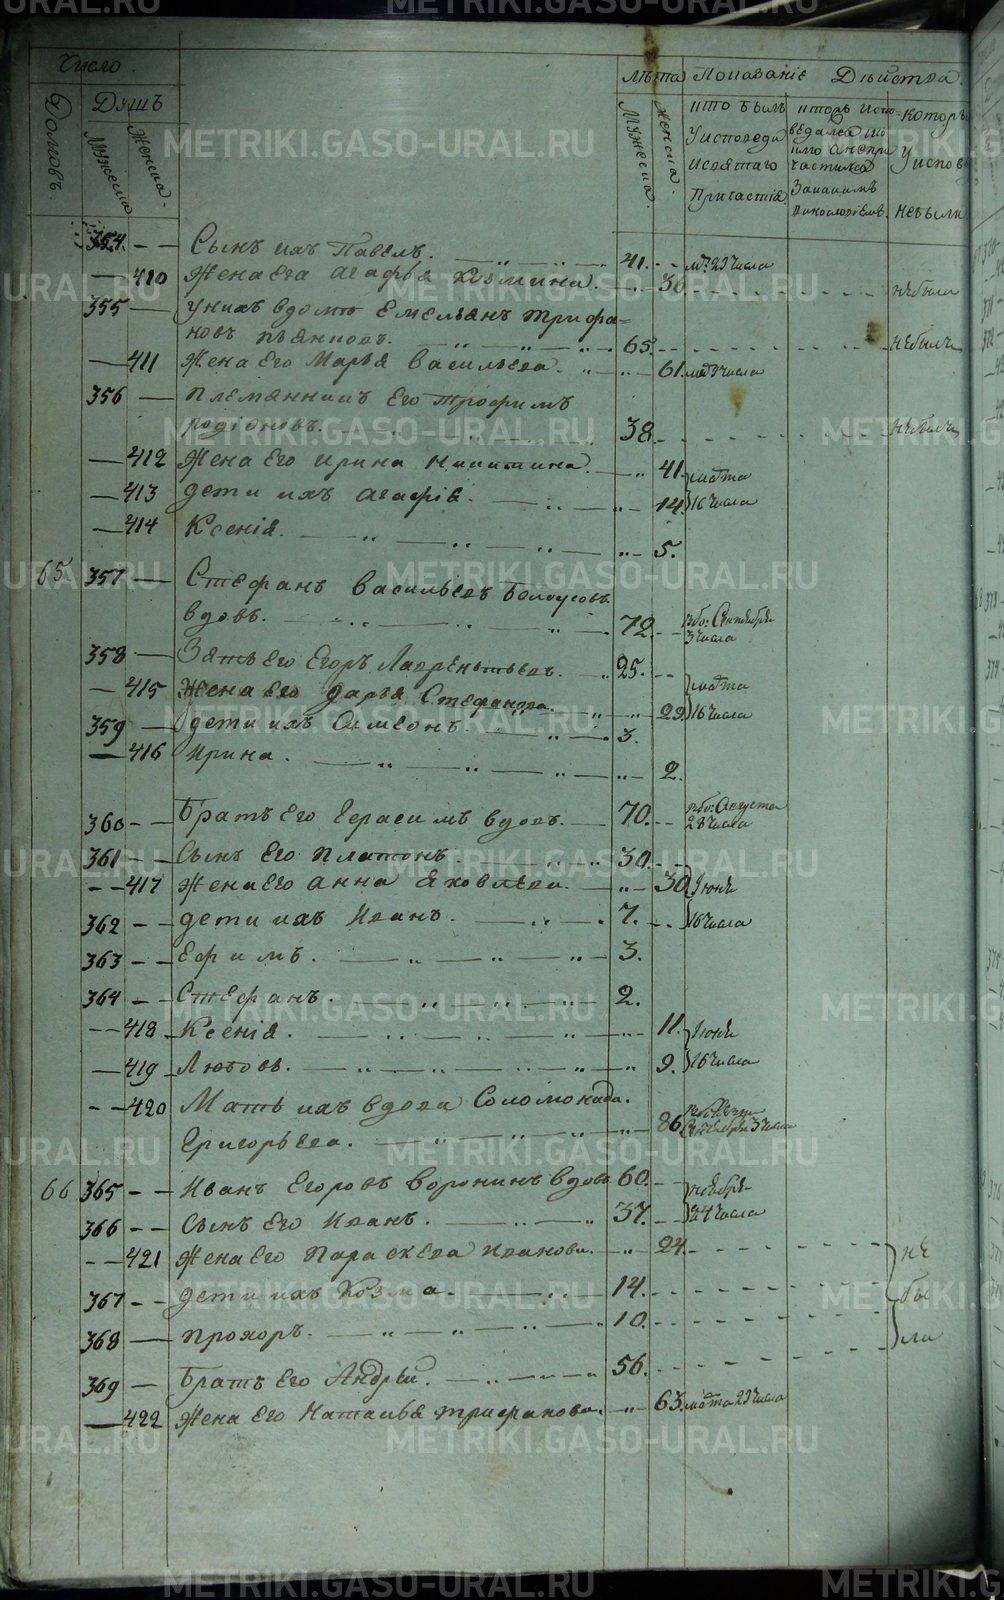 Число
Лѣта Показаніе Дѣйства.
Домовъ.
Душъ
Мужеска
Женска.
Мужеска.
Женска.
кто былъ
у исповеди
и святаго
Причастія
кторы испо-
ведался
а непри
частился
Закакимъ
которы
у испов
небыли
354. — — Сынъ ихъ Павелъ. 41. — 23 числа
— 410 Жена Его Агафья Козмина. 30 небыла
355 — У нихъ вдомѣ Емельянъ Трифа=
новъ 65. небылъ
— 411 Жена Его Марья Васильева. 61. 23 числа
356 — Племянникъ Его Трофимъ
родіоновъ. 38 небылъ
— 412 Жена Его Ирина Никитина. 41. марта
— 413 дети ихъ Агафія. 14. 16 числа
— 414 Ксенія. 5.
65 357 — Стефанъ Васильевъ Белоусовъ
вдовъ. 72. Сентября
3 числа
358 — Зять Его Егоръ Лаврентьевъ. 25. — —
— 415 Жена Его Дарья Стефанова. 29. марта 16 числа
359 — дети ихъ Симеонъ. 3.
— 416 Ирина. 2.
360 — — Братъ Его Герасимъ вдовъ. 70. — Августа
28 числа
361 — — Сынъ Его Платонъ. 30. — —
— — 417 Жена Его Анна Яковлева. 30. Июня
362 — — дети ихъ Иванъ. 7. — — 16 числа
363 — — Ефимъ. 3.
364 — — Стефанъ. 2.
— — 418 Ксенія. 11. Июня
— 419 Любовь. 9. 16 числа
— — 420 Мать ихъ вдова Соломонида.
Григорьева. 86. Сентября 3 числа
66 365 — — Иванъ Егоровъ Воронинъ вдовъ 60. — ноября
366 — — Сынъ Его Иванъ. 37. — — 24 числа
— — 421 Жена Его Параскева Иванова. 24. не
367 — — дети ихъ Козма. 14. бы
368 — Прохоръ. 10. ли
369 — Братъ Его Андрей. 56.
— 422 Жена Его Наталья Трифанова. 63. марта 23 числа
METRIKI.GASO-URAL.RU